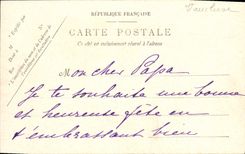 Vaucluse
RÉPUBLIQUE FRANÇAISE
CARTE POSTALE
Ce côté est exclusivement réservé à l'adresse
Mon cher Papa
Je te souhaite une bonne
et heureuse fête en
t'embrassant bien